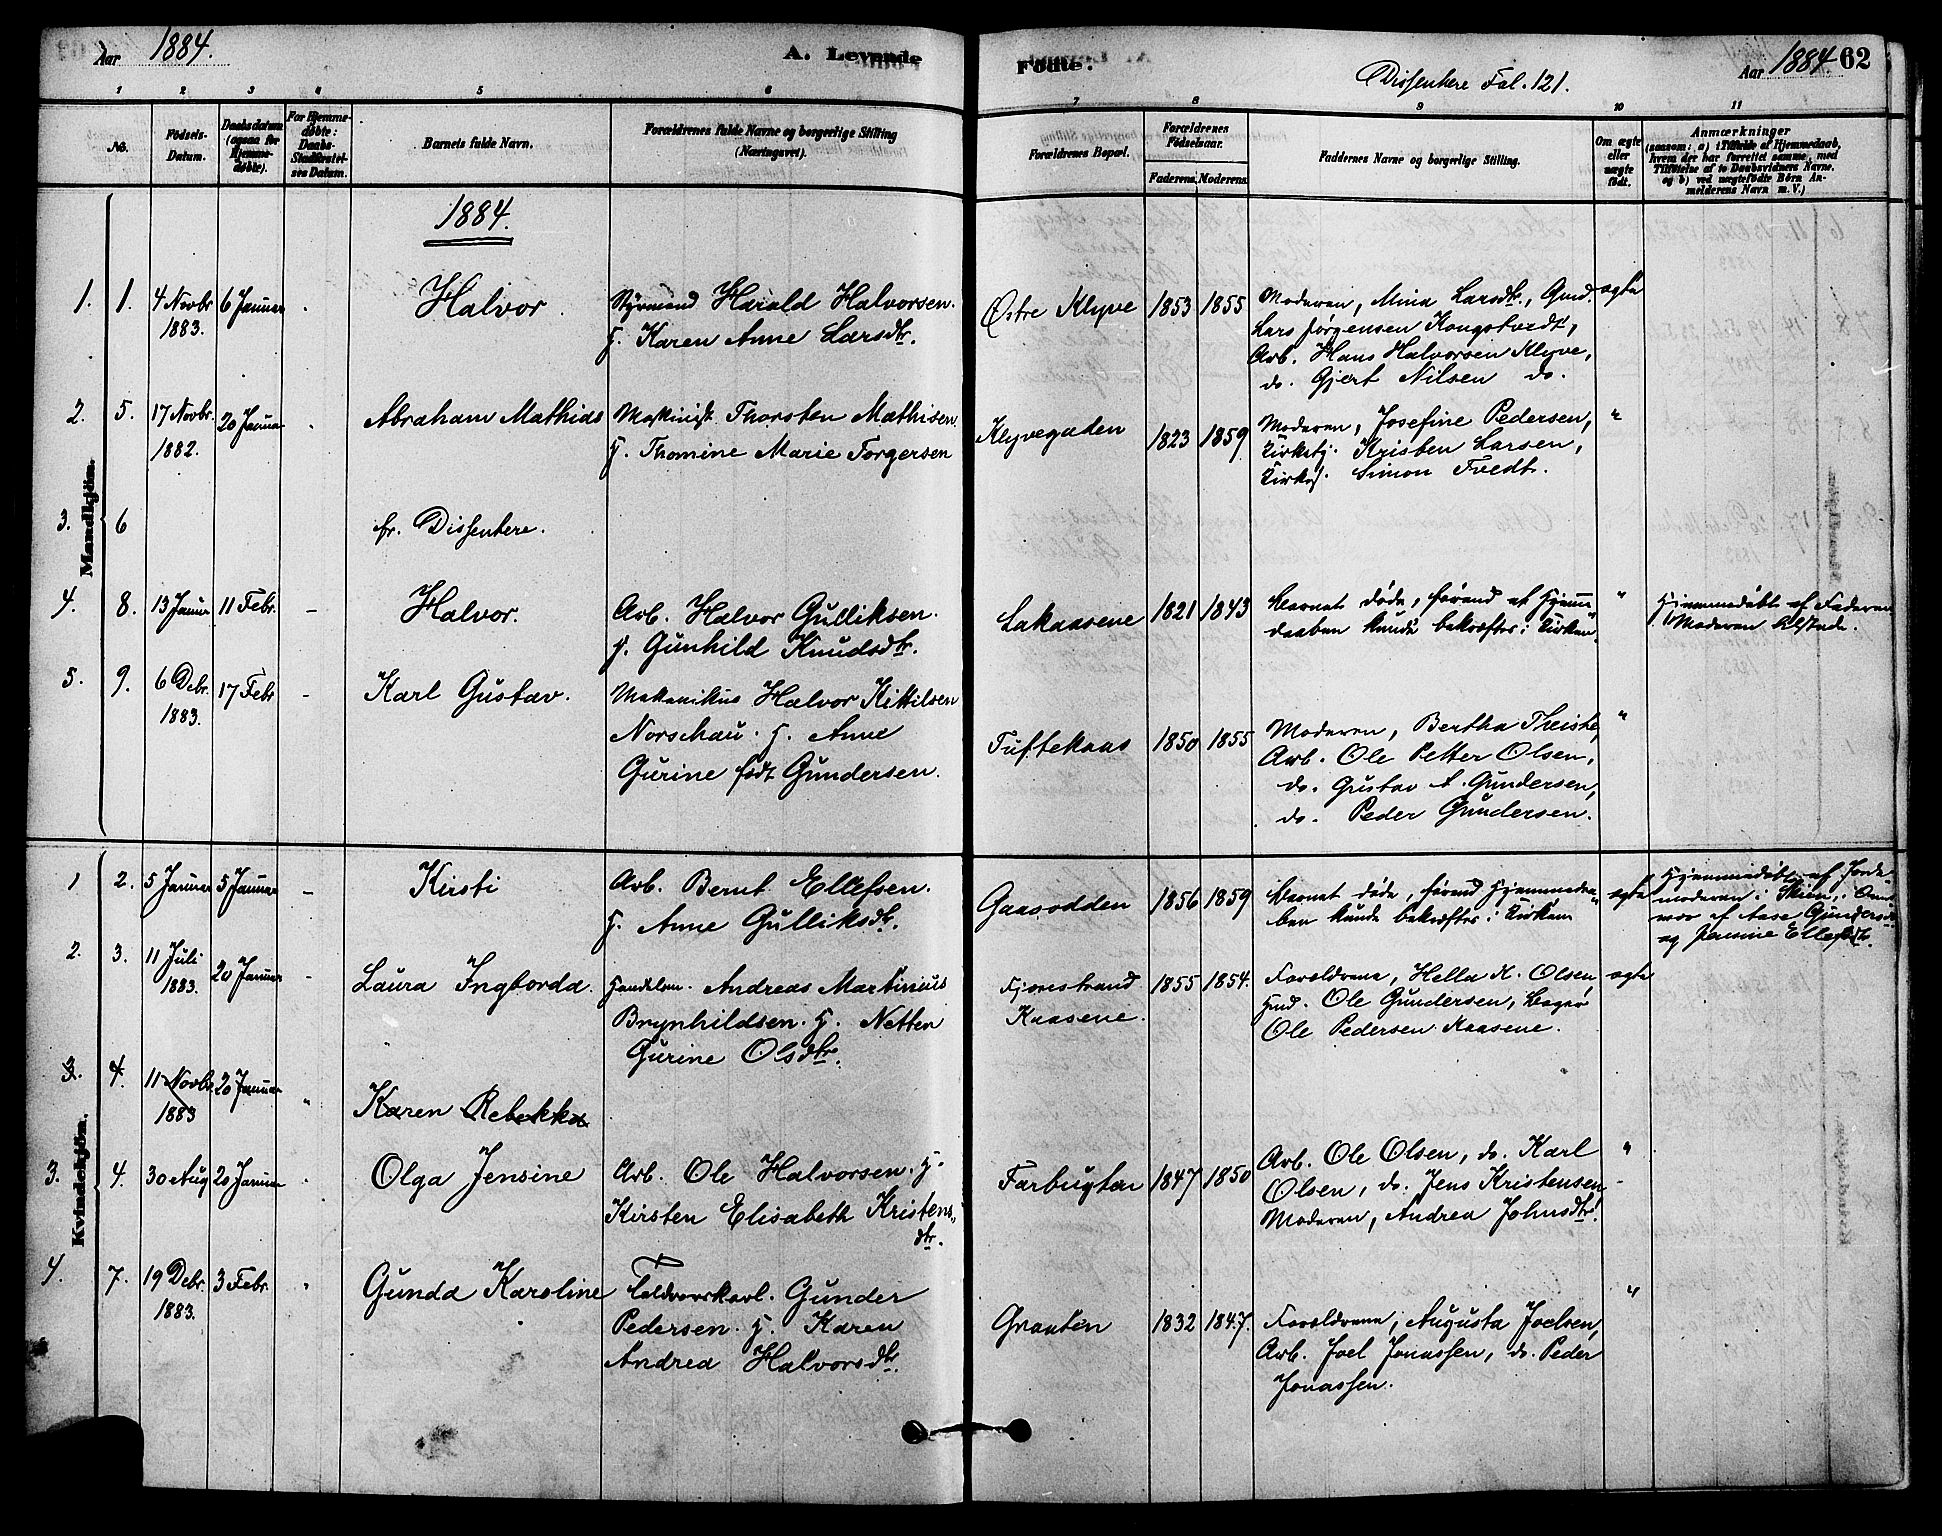 Aar 1884.
A. Levende Fødte.
Dissentere Fol. 121.
Aar 1884. 62
1 2 3 4 5 6 7 8 9 10 11
No.
Fødsels-
Datum.
Daabsdatum
(ogsaa for
Hjemme-
døbte).
For Hjemme-
døbte:
Daabs-
Stadfæstel-
ses Datum.
Barnets fulde Navn.
Forældrenes fulde Navne og borgerlige Stilling
(Næringsvei).
Forældrenes Bopæl.
Forældrenes
Fødselsaar.
Faderens. Moderens.
Faddernes Navne og borgerlige Stilling.
Om ægte
eller
uægte
født.
Anmærkninger
(saasom: a) i Tilfælde af Hjemmedaab,
hvem der har forrettet samme, med
Tilføielse af to Daabsvidners Navne.
og b) ved uægtefødte Børn An-
melderens Navn m. V.)
Mandkjøn.
1884.
1. 1. 4 Novbr 1883. 6 Januar Halvor.
Styrmand Harald Halvorsen.
H. Karen Anne Larsdtr.
Østre Klyve 1853 1855
Moderen, Mina Larsdtr., Gmd.
Lars Jørgensen Kongstvedt,
Arb. Hans Halvorsen Klyve,
do. Gjert Nilsen do.
ægte
2. 5. 17 Novbr. 1882. 20 Januar Abraham Mathias
Maskinist Thorsten Mathisen.
H. Thomine Marie Torgersen
Klyvegaden 1823 1859
Moderen, Josefine Pedersen,
Kirketj. Kristen Larsen,
Kirkes. Simon Tvedt.
"
3. 6 fr. Dissentere.
4. 8. 13 Januar 11 Febr. - Halvor.
Arb. Halvor Gulliksen.
H. Gunhild Knudsdtr.
Lakaasene 1821 1843
Barnet døde, førend af Hjemme-
daaben kunde bekræftes i Kirken.
"
Hjemmedøbt af Faderen
Moderen tilstede.
5. 9. 6 Debr. 1883. 17 Febr - Karl Gustav.
Mekanikus Halvor Kittilsen
Norschau. H. Anne
Gurine født Gundersen.
Tuftekaas 1850 1855
Moderen, Bertha Theiste,
Arb. Ole Petter Olsen,
do. Gustav A. Gundersen,
do. Peder Gundersen.
"
Kvindekjøn.
1 2. 5 Januar 5 Januar - Kirsti
Arb. Bernt Ellefsen.
H. Anne Gulliksdtr.
Gaasodden 1856 1859
Barnet døde, førend Hjemmedaa-
ben kunde bekræftes i Kirken
ægte
Hjemmedøbt af Jorde-
moderen i Skien, i Over-
vær af Aase Gundersdtr
og Jensine Ellefsdtr.
2. 3. 11 Juli 1883. 20 Januar - Laura Ingborda.
Handelsm. Andreas Martinius
Brynhildsen. H. Netten
Gurine Olsdtr.
Fjærestrand
Kaasene.
1855 1854.
Forældrene, Hella K. Olsen,
Gmd. Ole Gundersen, Bagør
Ole Pedersen Kaasene.
ægte
3. 4. 11 Novbr 1883 20 Januar " Karen Rebekka
3. 4. 30 Aug 20 Januar Olga Jensine
Arb. Ole Halvorsen. H.
Kirsten Elisabeth Kristens-
dtr.
Farbugten 1847 1850
Arb. Ole Olsen, do. Karl
Olsen, do. Jens Kristensen
Moderen, Andrea Johnsdtr.
"
4. 7. 19 Debr. 1883. 3 Febr. " Gunda Karoline
Teldværkarl. Gunder
Pedersen. H. Karen
Andrea Halvorsdtr.
Graaten 1832 1847.
Forældrene, Augusta Joelsen,
Arb. Joel Jonassen, do. Peder
Jonassen.
"